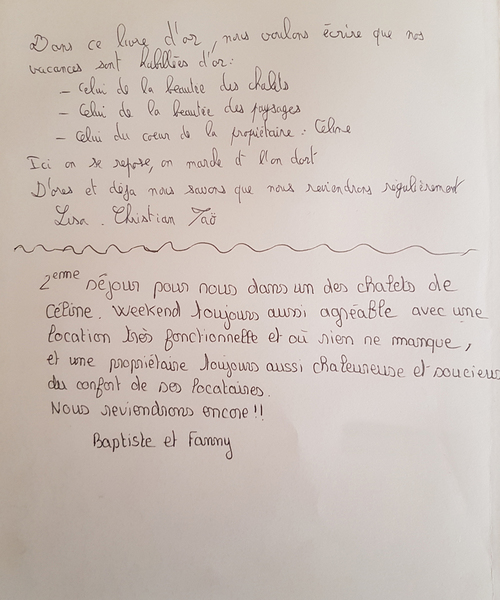 Dans ce livre d'or, nous voulons écrire que nos
vacances sont habillées d'or :
- Celui de la beautée des chalets
- Celui de la beautée des paysages
- Celui du coeur de la propriétaire : Céline
Ici on se repose, on marche et l'on dort
D'ores et déja nous savons que nous reviendrons régulièrement
Lisa . Christian Taö
2eme séjour pour nous dans un des chalets de
Céline. Weekend toujours aussi agréable avec une
location très fonctionnelle et où rien ne manque,
et une propriétaire toujours aussi chaleureuse et soucieus
du confort de ses locataires.
Nous reviendrons encore !!
Baptiste et Fanny